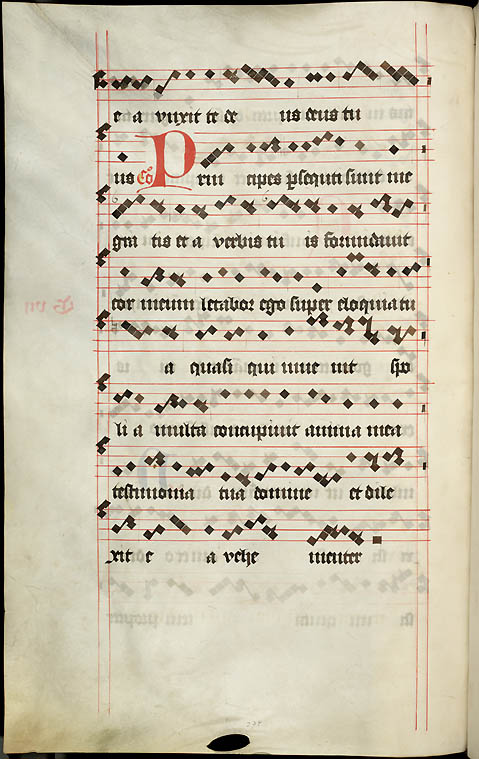 e a vnxit te de us deus tu
us Co Prin cipes psequti sunt me
gra tis et a verbis tu is formidauit
cor meum letabor ego super eloquia tu
a quasi qui inue nit spo
li a multa concupiuit anima mea
testimonia tua domine et dile
xit e a vehe menter